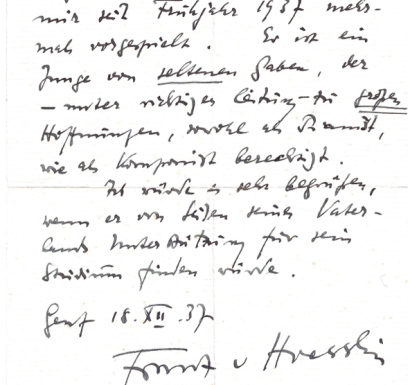 mir seit Frühjahr 1937 mehr-
mals vorgespielt. Er ist ein
Junge von seltenen Gaben, der
– unter richtiger Leitung – zu großen
Hoffnungen, sowohl als Pianist,
wie als Komponist berechtigt.
Ich würde es sehr begrüßen,
wenn er von Seiten seines Vater-
lands Unterstützung für sein
Studium finden würde.
Genf 18.XII.37
Franz v Hoesslin